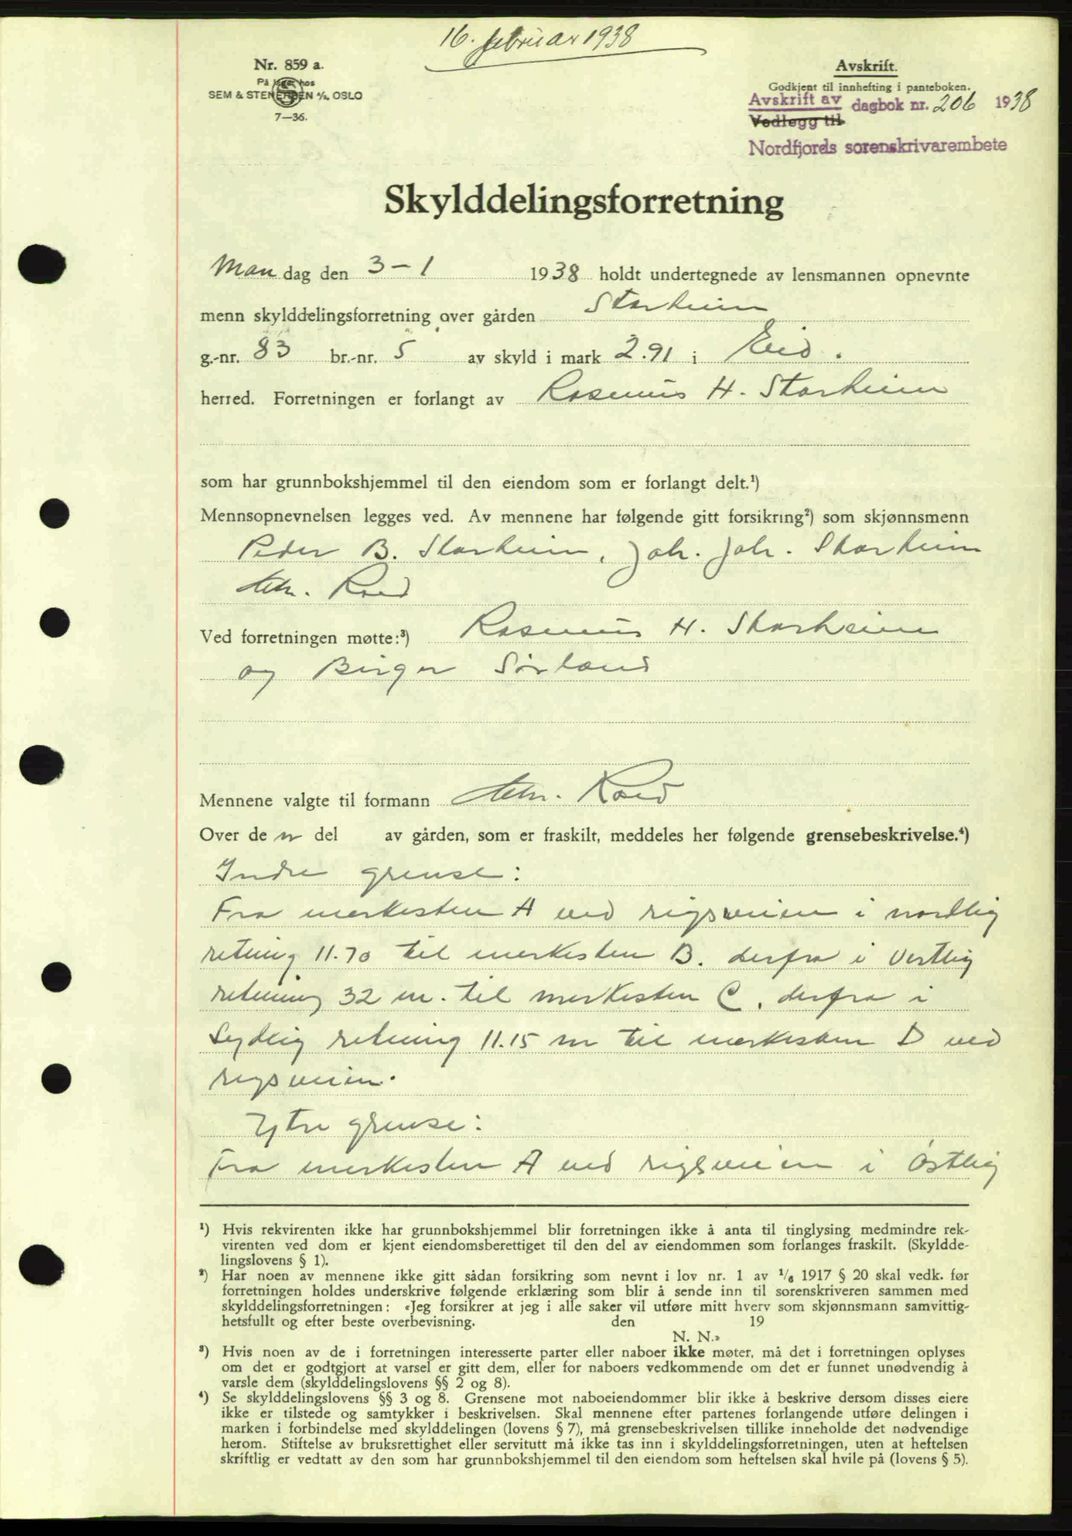 16. februar 1938
Nr. 859 a.
På lager hos
SEM & STENERSEN A/S, OSLO
7—36.
Avskrift.
Godkjent til innhefting i panteboken.
Avskrift av dagbok nr. 206 1938
Vedlegg til
Nordfjords sorenskrivarembete
Skylddelingsforretning
Man dag den 3-1 1938 holdt undertegnede av lensmannen opnevnte
menn skylddelingsforretning over gården Starheim
g.-nr. 83 br.-nr. 5 av skyld i mark 2.91 i Eid.
herred. Forretningen er forlangt av Rasmus H. Starheim
som har grunnbokshjemmel til den eiendom som er forlangt delt.¹)
Mennsopnevnelsen legges ved. Av mennene har følgende gitt forsikring²) som skjønnsmenn
Peder B. Starheim, Joh. Joh. Starheim
Roed
Ved forretningen møtte:³) Rasmus H. Starheim
og Birger Sørland
Mennene valgte til formann Roed
Over de n del av gården, som er fraskilt, meddeles her følgende grensebeskrivelse.⁴)
Indre grense:
Fra merkesten A ved rigsveien i nordlig
retning 11.70 til merkesten B. derfra i vestlig
retning 32 m. til merkesten C, derfra i
Sydlig retning 11.15 m til merkesten D ved
rigsveien.
Ytre grense:
Fra merkesten A ved rigsveien i Østlig
¹) Hvis rekvirenten ikke har grunnbokshjemmel blir forretningen ikke å anta til tinglysing medmindre rek-
virenten ved dom er kjent eiendomsberettiget til den del av eiendommen som forlanges fraskilt. (Skyldde-
lingslovens § 1).
²) Har noen av mennene ikke gitt sådan forsikring som nevnt i lov nr. 1 av 1/6 1917 § 20 skal vedk. før
forretningen holdes underskrive følgende erklæring som blir å sende inn til sorenskriveren sammen med
skylddelingsforretningen: «Jeg forsikrer at jeg i alle saker vil utføre mitt hverv som skjønnsmann samvittig-
hetsfullt og efter beste overbevisning. den 19
N. N.»
³) Hvis noen av de i forretningen interesserte parter eller naboer ikke møter, må det i forretningen oplyses
om det er godtgjort at varsel er gitt dem, eller for naboers vedkommende om det er funnet unødvendig å
varsle dem (skylddelingslovens §§ 2 og 8).
⁴) Se skylddelingslovens §§ 3 og 8. Grensene mot naboeiendommer blir ikke å beskrive dersom disses eiere
ikke er tilstede og samtykker i beskrivelsen. Skal mennene efter partenes forlangende utføre delingen i
marken i forbindelse med skylddelingen (lovens § 7), må grensebeskrivelsen tillike inneholde det nødvendige
herom. Stiftelse av bruksrettighet eller servitutt må ikke tas inn i skylddelingsforretningen, uten at heftelsen
skriftlig er vedtatt av den som har grunnbokshjemmel til den eiendom som heftelsen skal hvile på (lovens § 5).